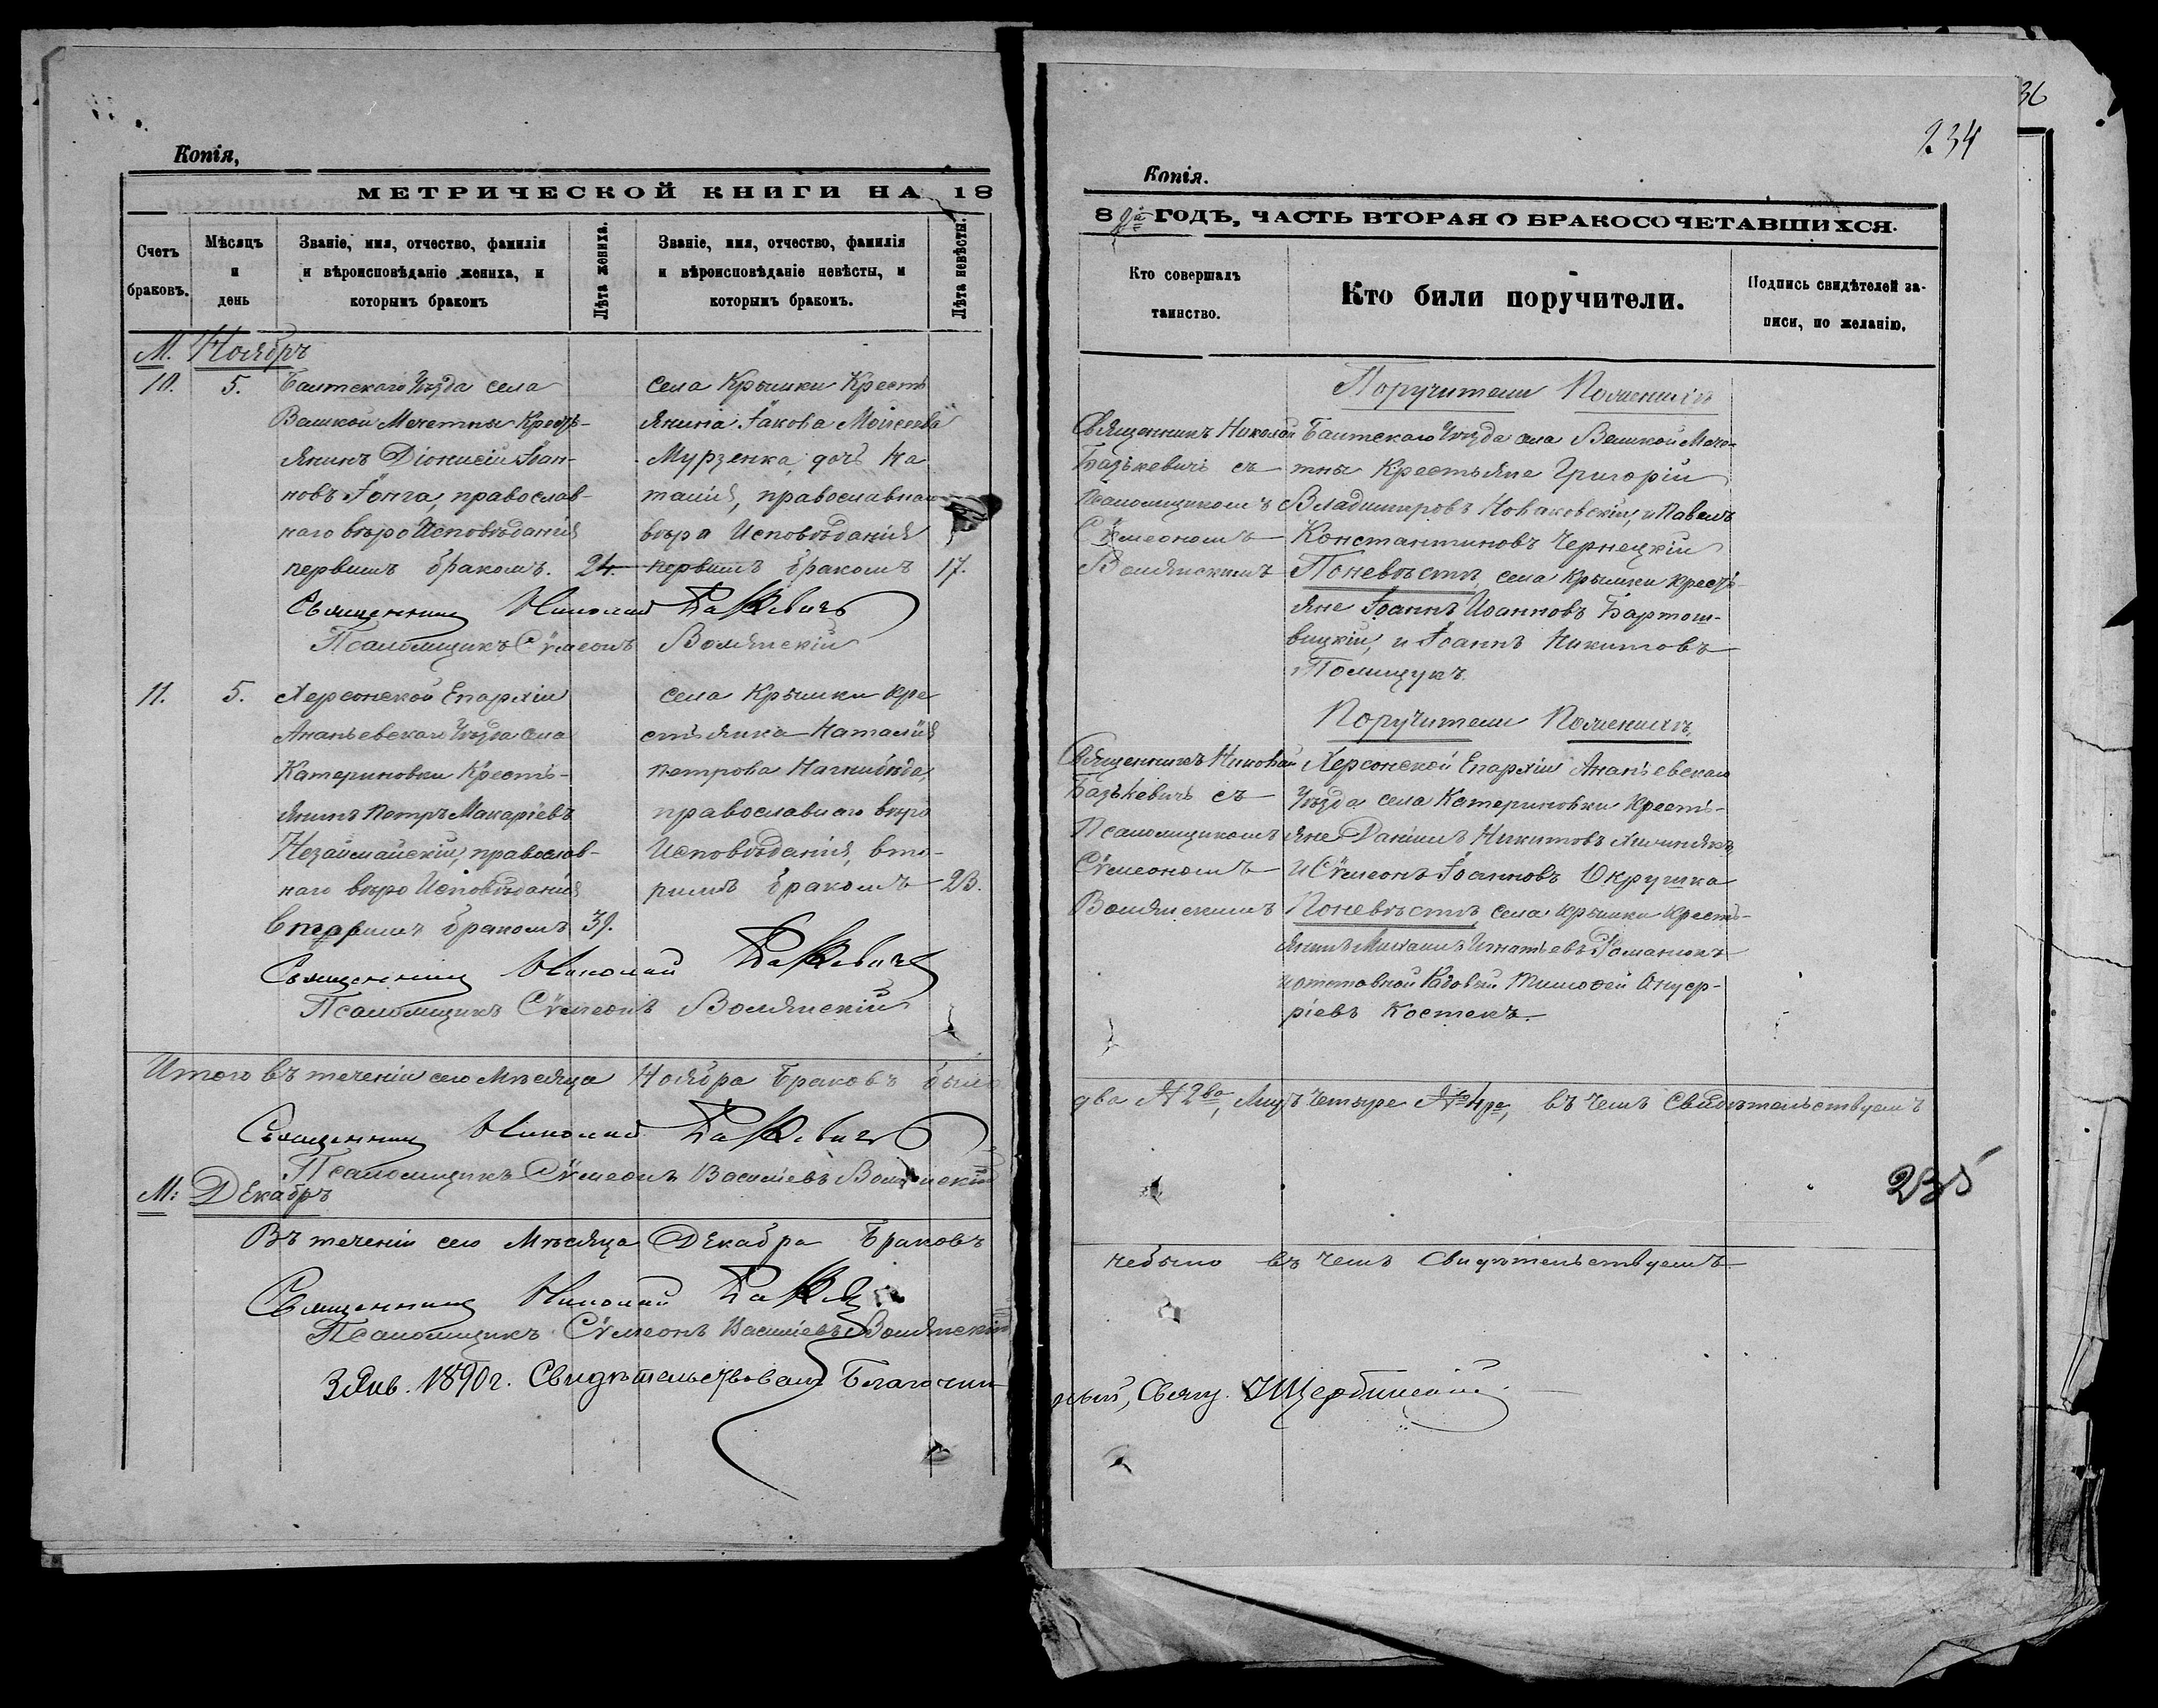 Копія,
МЕТРИЧЕСКОЙ КНИГИ НА 18
Счетъ браковъ.
Мѣсяцъ и день
Званіе, имя, отчество, фамилія и вѣроисповѣданіе жениха, и которымъ бракомъ
Лѣта жениха.
Званіе, имя, отчество, фамилія и вѣроисповѣданіе невѣсты, и которымъ бракомъ.
Лѣта невѣсты.
М. Ноябрь
10. 5.
Балтскаго Уѣзда села
Великой Мечетны Кресть-
янинъ Діонисій Іоан-
новъ Гонга, православ-
наго вѣро Исповѣданія
первымъ бракомъ. 24.
села Крымки Кресть
янина Іакова Моисеева
Мурзенка, дочь На
талія, православнаго
вѣро Исповѣданія
первымъ бракомъ 17.
Священникъ Николай Базькевичъ
Псаломщикъ Сѵмеонъ Волянскій
11. 5.
Херсонской Епархіи
Ананьевскаго Уѣзда села
Катериновки Кресть-
янинъ Петръ Макаріевъ
Незаймайскій, православ-
наго вѣро Исповѣданія
вторымъ бракомъ 39.
села Крымки кре
стьянка Наталія
Петрова Нагнибѣда,
православнаго вѣро
Исповѣданія, вто-
рымъ бракомъ 23.
Священникъ Николай Базькевичъ
Псаломщикъ Сѵмеонъ Волянскій
Итого въ теченіи сего Мѣсяца Ноября Браковъ было
Священникъ Николай Базькевичъ
Псаломщикъ Сѵмеонъ Васильевъ Волянскій
М: Декабрь
Въ теченіи сего Мѣсяца Декабря Браковъ
Священникъ Николай
Псаломщикъ Сѵмеонъ Васильевъ Волянскій
3 Янв. 1890 г. Свидѣтельствовалъ Благочин
36
234
Копія.
89 ГОДЪ, ЧАСТЬ ВТОРАЯ О БРАКОСОЧЕТАВШИХСЯ.
Кто совершалъ таинство.
Кто били поручители.
Подпись свидѣтелей записи, по желанію.
Поручители По женихѣ
Священникъ Николай
Базькевичъ съ
Псаломщикомъ
Сѵмеономъ
Волянскимъ
Балтскаго Уѣзда села Великой Мече-
тны Крестьяне Григорій
Владимировъ Новаковскій, и Павелъ
Константиновъ Чернецкій
По невѣстѣ, села Крымки кресть-
яне Іоаннъ Иоанновъ Бартош-
вицкій, и Іоаннъ Никитовъ
Полищукъ.
Поручители По женихѣ,
Священникъ Николай
Базькевичъ съ
Псаломщикомъ
Сѵмеономъ
Волянскимъ
Херсонской Епархіи Ананьевскаго
Уѣзда села Катериновки Кресть-
яне Даніилъ Никитовъ
И Сѵмеонъ Іоанновъ Окрушка
По невѣстѣ, села Крымки кресть-
янинъ Михаилъ Игнатьевъ Романюкъ
и отставной Рядовый Тимофей Онуф-
ріевъ Костекъ.
два № 2ва, Лицъ четыре № 4ре, въ чемъ Свидѣтельствуемъ
235
небыло въ чемъ Свидѣтельствуемъ
ный, Свящ. Щербинскій